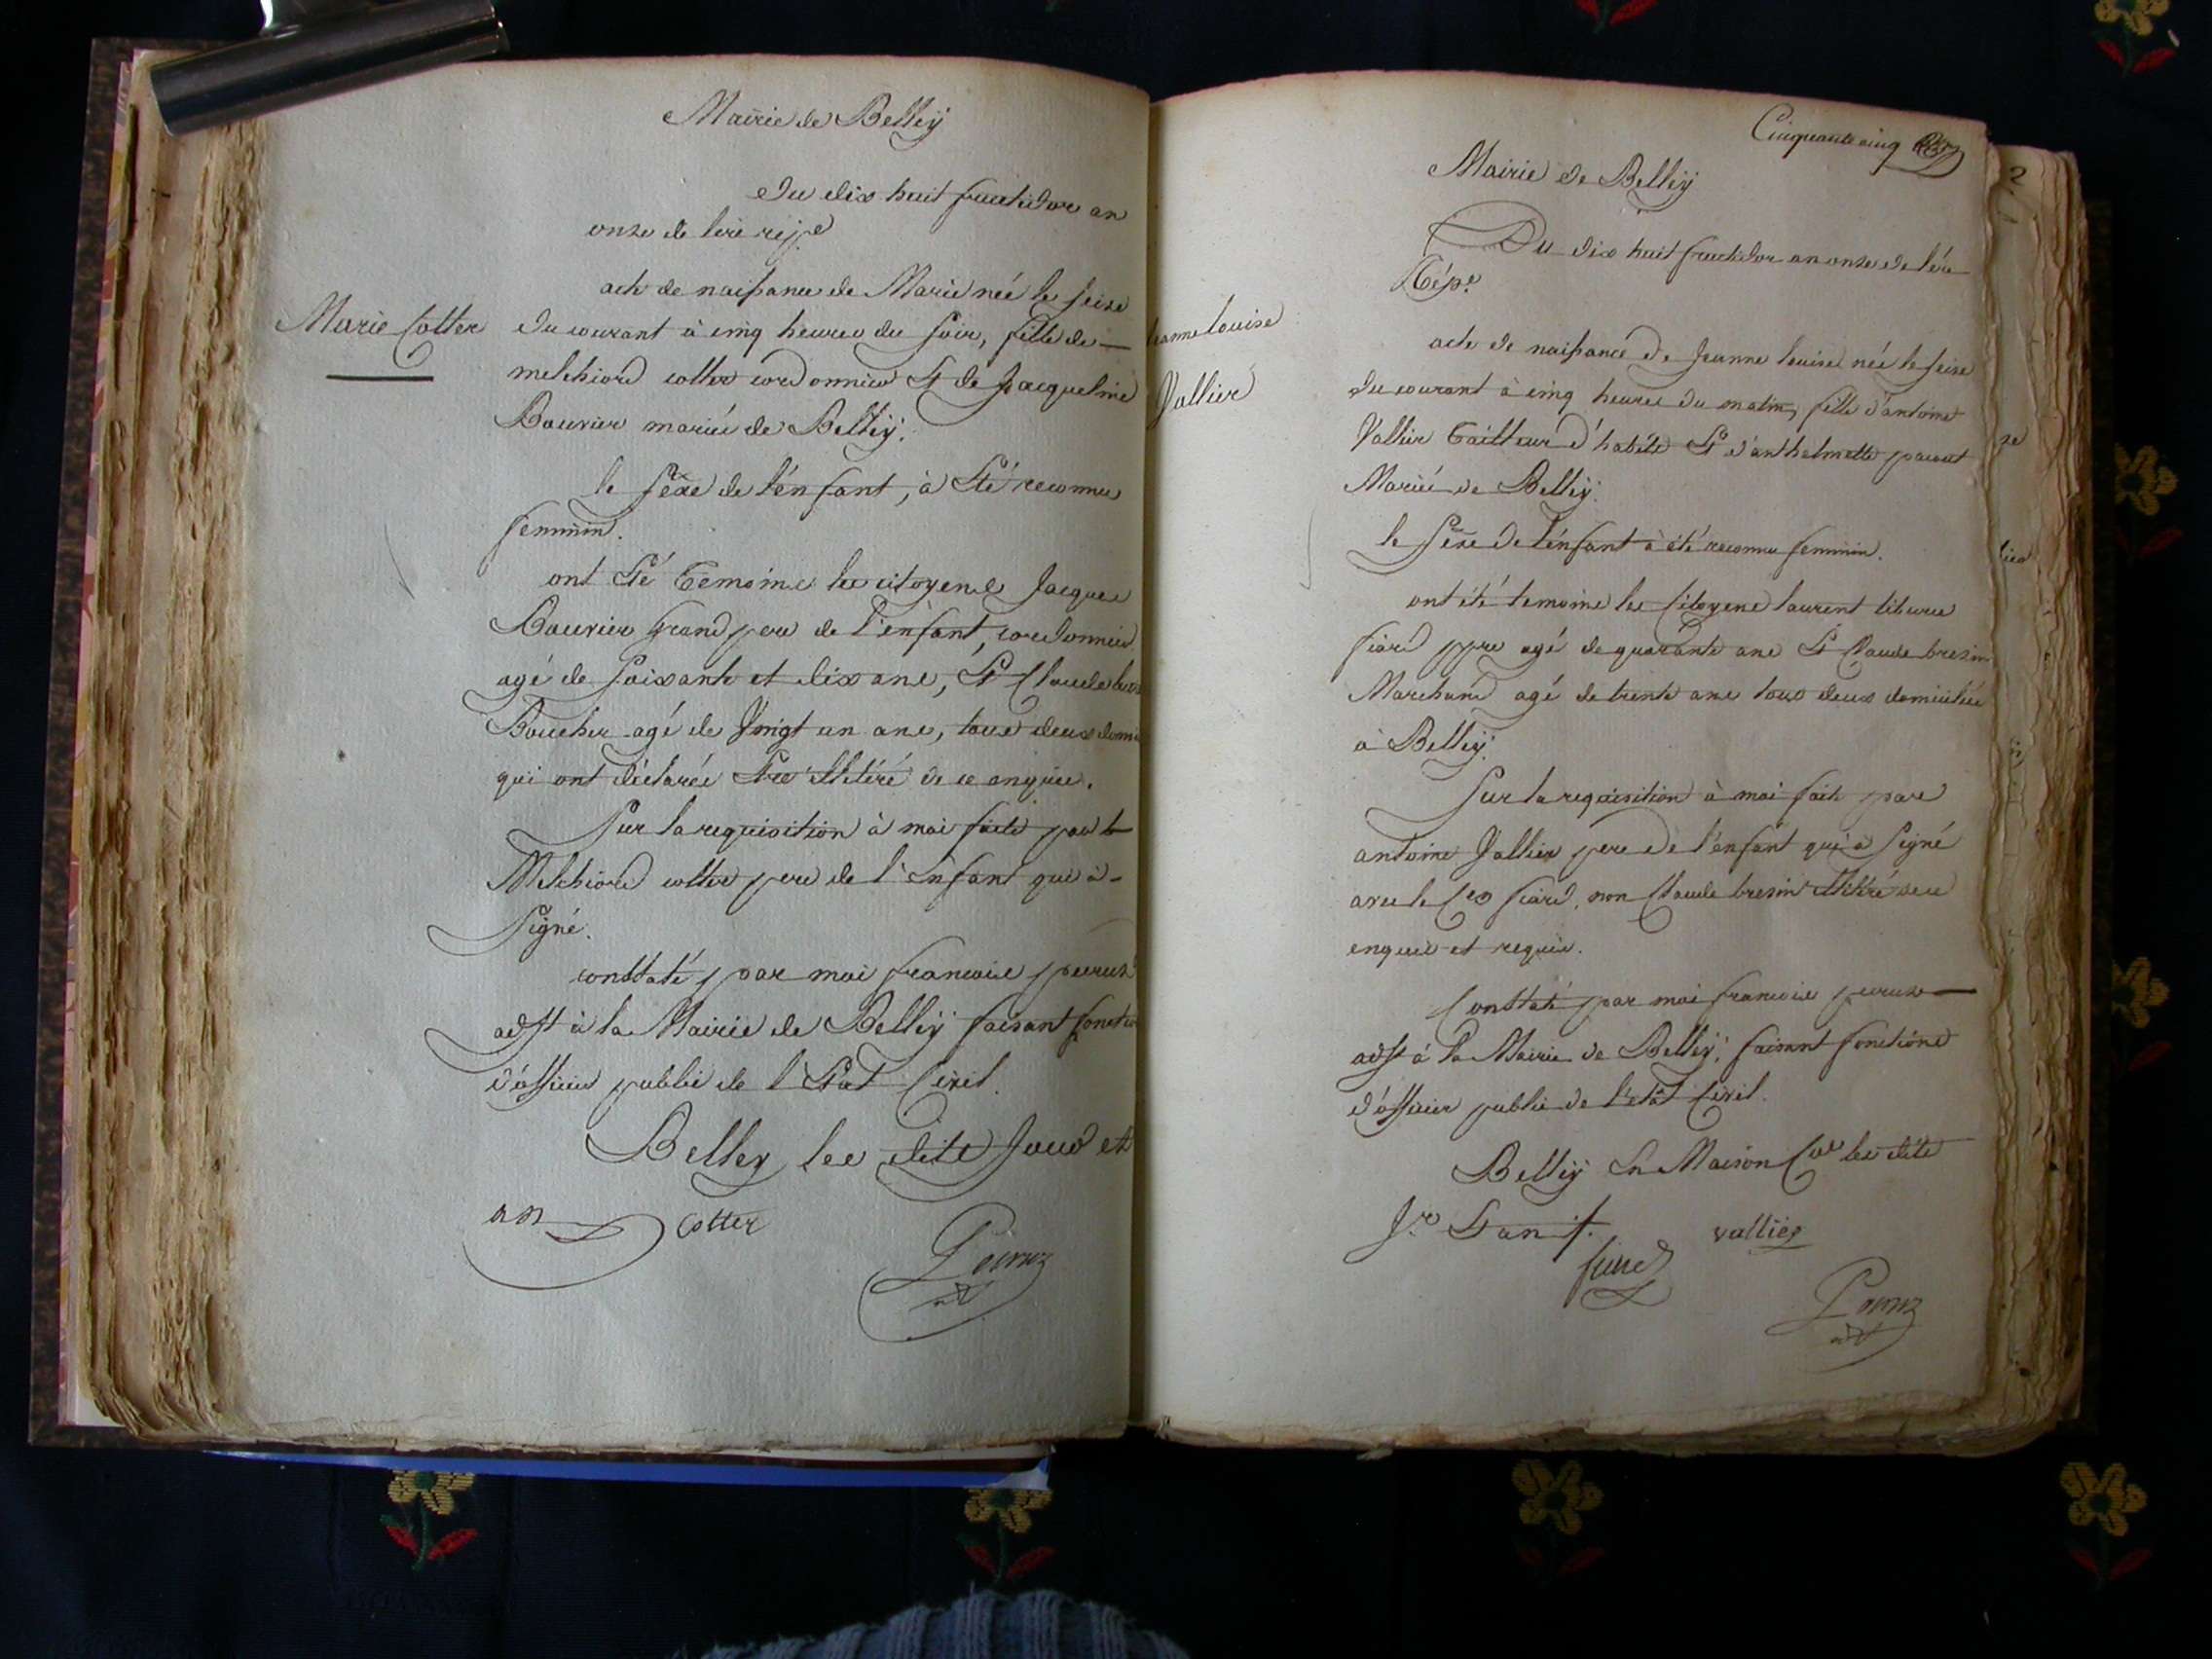 Mairie de Belleÿ
du dix huit fructidor an
onze de l'ere rép.e
acte de naissance de Marie née le seize
Marie Cotter
du courant à cinq heures du soir, fille de
melchiord cotter cordonnier Et de Jacqueline
Bouvier mariés de Belleÿ.
le séxe de l'énfant, à Eté reconnu
feminin.
ont Eté témoins les citoyens Jacques
Bouvier grand pere de l'énfant, cordonnier
agé de soixante et dix ans, Et Claude
Boucher agé de Vingt un ans, tous deux
qui ont déclarés Etre illitéré de ce enquis.
Sur la requisition à moi faite par le
Melchiord cotter pere de l'Enfant qui à
signé.
constaté par moi francois peruz
adjt à la Mairie de Belleÿ faisant
d'officier public de l'Etat Civil.
Belley les dits Jour et
an
Cotter
Peruz
adt
Cinquante cinq
Mairie de Belleÿ
Du dix huit fructidor an onze de l'ére
Rép.e
Jeanne louise
Vallier
acte de naissance de Jeanne louise née le seize
du courant à cinq heures du matin, fille d'antoine
Vallier Tailleur d'habits Et d'anthelmette
Mariés de Belleÿ.
le séxe de l'énfant à été reconnu feminin.
ont été temoins les Citoyens laurent
fiard ppre agé de quarante ans Et Claude bresin
Marchand agé de trente ans tous deux domiciliés
à Belleÿ.
Sur la requisition à moi faite par
antoine Vallier pere de l'énfant qui à signé
avec le Cen fiard, non Claude bresin illitéré de ce
enquis et requis.
Constaté par moi francois peruz
adjt à la Mairie de Belleÿ, faisant fonctions
d'officier public de l'etat Civil.
Belleÿ En Maison Cne les dits
Jr Et an
vallier
fiard
Peruz
adt